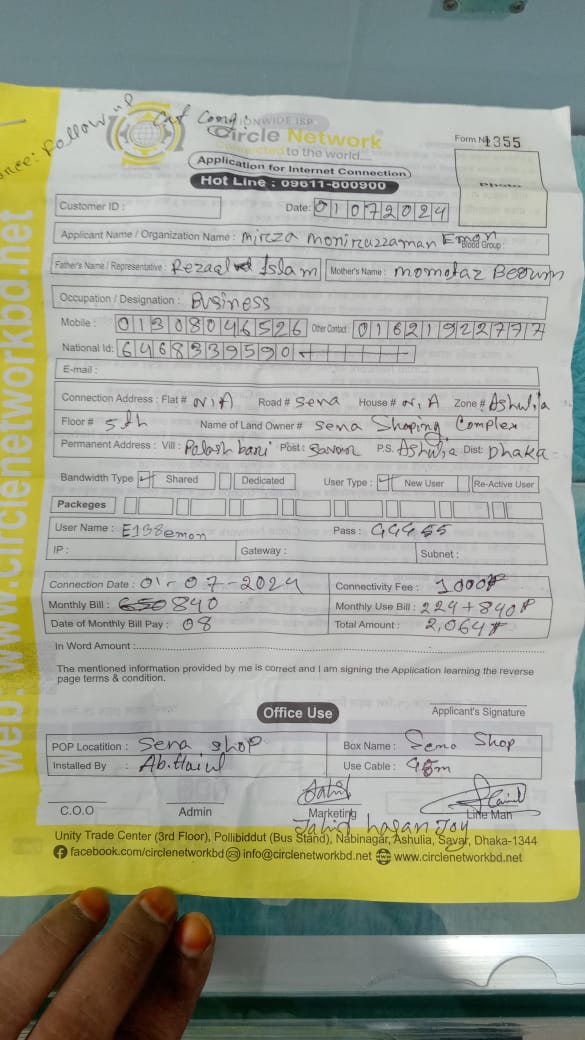 Follow up
NATIONWIDE ISP
Circle Network
Connected to the world...
Application for Internet Connection
Hot Line : 09611-800900
Form No 1355
Photo
Customer ID :
Date: 01072024
Applicant Name / Organization Name : Mirza Moniruzzaman Emon Blood Group :
Father's Name / Representative : Rezaul Islam Mother's Name : Momotaz Begum
Occupation / Designation : Business
Mobile : 01308046526 Other Contact : 01621922777
National Id: 6468339590
E-mail :
Connection Address : Flat # N/A Road # Sena House # N/A Zone # Ashulia
Floor # 5th Name of Land Owner # Sena Shoping Complex
Permanent Address : Vill : Palash bari Post : Savar P.S. Ashulia Dist: Dhaka
Bandwidth Type Shared Dedicated User Type : New User Re-Active User
Packeges
User Name : E138emon Pass : 44455
IP : Gateway : Subnet :
Connection Date : 01-07-2024 Connectivity Fee : 1000
Monthly Bill : 650 840 Monthly Use Bill : 224 + 840
Date of Monthly Bill Pay : 08 Total Amount : 2,064
In Word Amount :
The mentioned information provided by me is correct and I am signing the Application learning the reverse
page terms & condition.
Applicant's Signature
Office Use
POP Locatition : Sena shop Box Name : Sena Shop
Installed By : Ab. Use Cable : m
C.O.O Admin Marketing Line Man
Jahid hasan Joy
Unity Trade Center (3rd Floor), Pollibiddut (Bus Stand), Nabinagar, Ashulia, Savar, Dhaka-1344
facebook.com/circlenetworkbd info@circlenetworkbd.net www.circlenetworkbd.net
web: www.circlenetworkbd.net